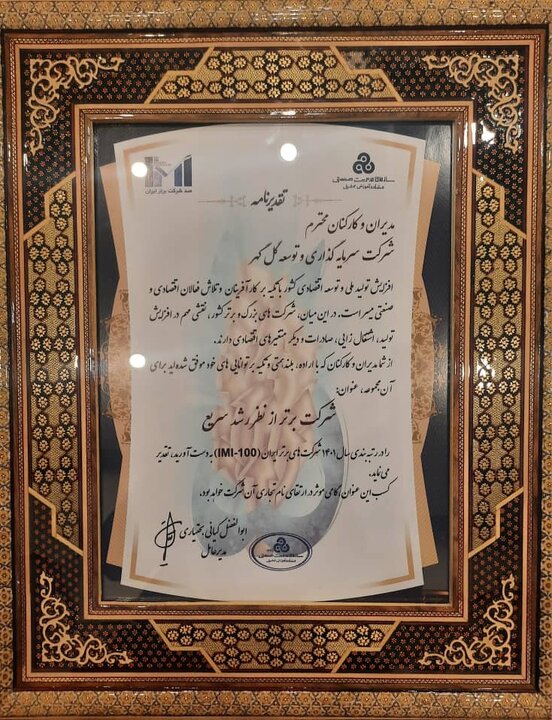 صد شرکت برتر ایران
سازمان مدیریت صنعتی
تقدیرنامه
مدیران و کارکنان محترم
شرکت سرمایه گذاری و توسعه گل گهر
افزایش تولید ملی و توسعه اقتصادی کشور با تکیه بر کارآفرینان و تلاش فعالان اقتصادی و
صنعتی میسر است. در این میان، شرکت های بزرگ و برتر کشور، نقشی مهم در افزایش
تولید، اشتغال زایی، صادرات و دیگر متغیرهای اقتصادی دارند.
از شما مدیران و کارکنان که با اراده، بلندهمتی و تکیه بر توانایی های خود موفق شده اید برای
آن مجموعه، عنوان:
شرکت برتر از نظر رشد سریع
را در رتبه بندی سال ۱۴۰۱ شرکت های برتر ایران (IMI-100) به دست آورید، تقدیر
می نماید.
کسب این عنوان، گامی موثر در ارتقای نام تجاری آن شرکت خواهد بود.
ابوالفضل کیانی بختیاری
مدیرعامل